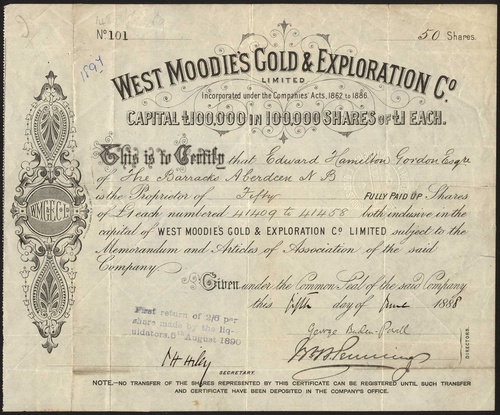 No 101
50 Shares.
1894
WEST MOODIE'S GOLD & EXPLORATION Co.
LIMITED
Incorporated under the Companies' Acts, 1862 to 1886.
CAPITAL £100,000 IN 100,000 SHARES OF £1 EACH.
This is to Certify that Edward Hamilton Gordon Esqre
of The Barracks Aberdeen N B
is the Proprietor of Fifty FULLY PAID UP Shares
of £1 each numbered 41409 to 41458 both inclusive in the
capital of WEST MOODIE'S GOLD & EXPLORATION Co LIMITED subject to the
Memorandum and Articles of Association of the said
Company.
Given under the Common Seal of the said Company
this fifth day of June 1888
First return of 2/6 per
share made by the liq-
uidators, 5th August 1890
George Baden-Powell
DIRECTORS.
SECRETARY.
NOTE.-NO TRANSFER OF THE SHARES REPRESENTED BY THIS CERTIFICATE CAN BE REGISTERED UNTIL SUCH TRANSFER
AND CERTIFICATE HAVE BEEN DEPOSITED IN THE COMPANY'S OFFICE.